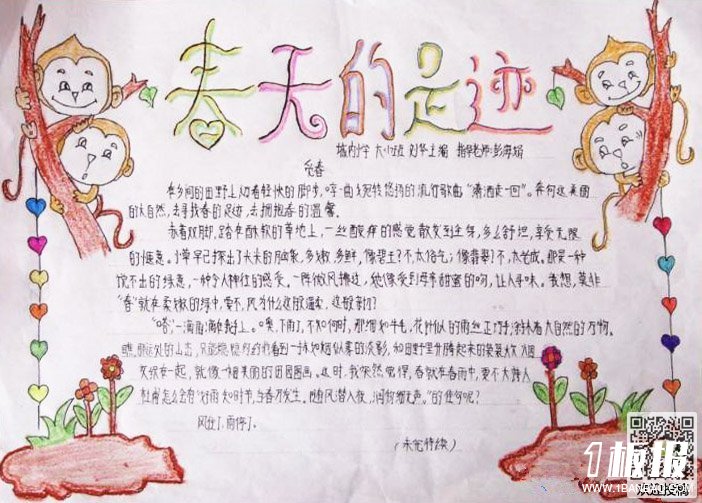 春天的足迹
城内小学 六(4)班 刘华主编 指导老师:彭海娟
觅春
在乡间的田野上,切着轻快的脚步,哼一曲支宛转悠扬的流行歌曲"潇洒走一回"。奔向这美丽
的大自然,去寻找春的足迹,去拥抱春的温馨。
赤着双脚,踏在酥软的草地上,一丝酸痒的感觉散发到全身,多么舒坦,享受无限
的惬意。小草早已探出了尖尖的脑袋,多嫩,多鲜,像碧玉?不,太俗气;像翡翠?不,太老成。那是一种
说不出的绿意,一种令人神往的感受。一阵微风擦过,她像受到母亲甜蜜的吻,让人寻味。我想,莫非
"春"就在柔嫩的绿中,要不,风为什么这般温柔,这般亲切?
"嗒",一滴雨,落在手上。噢,下雨了,不知何时,那细如牛毛,花针似的雨丝正巧手涂抹着大自然的万物。
瞧,那远处的山峦,只能隐隐约约看到一抹如烟似雾的淡影,和田野里升腾起来的袅袅炊烟
交织在一起,就像一幅美丽的田园图画。这时,我依然觉得,春就在春雨中,要不大诗人
杜甫怎么会有"好雨知时节,当春乃发生。随风潜入夜,润物细无声。"的佳句呢?
风住了,雨停了。
(未完待续)
1板报
WWW.1BANBAO.COM
欢迎投稿